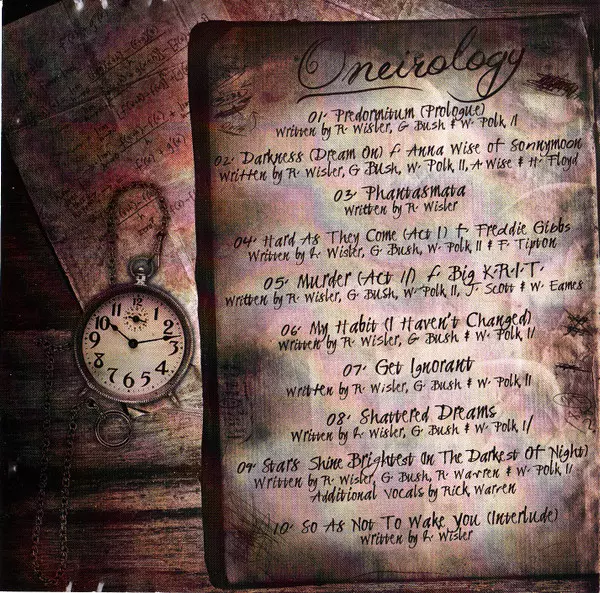 Oneirology
01. Predormitum (Prologue)
Written by R. Wisler, G Bush & W. Polk, II
02. Darkness (Dream On) f. Anna Wise of Sonnymoon
Written by R. Wisler, G Bush, W. Polk II, A Wise & H. Floyd
03. Phantasmata
Written by R. Wisler
04. Hard As They Come (Act I) f. Freddie Gibbs
Written by R. Wisler, G Bush, W. Polk II & F. Tipton
05. Murder (Act II) f. Big K.R.I.T.
Written by R. Wisler, G Bush, W. Polk II, J. Scott & W. Eames
06. My Habit (I Haven't Changed)
Written by R. Wisler, G. Bush & W. Polk, II
07. Get Ignorant
Written by R. Wisler, G Bush & W. Polk, II
08. Shattered Dreams
Written by R. Wisler, G Bush & W. Polk, II
09. Stars Shine Brightest (In The Darkest Of Night)
Written by R. Wisler, G Bush, R. Warren & W. Polk II
Additional Vocals by Rick Warren
10. So As Not To Wake You (Interlude)
Written by R. Wisler
12
11
10
9
8
7
6
5
4
3
2